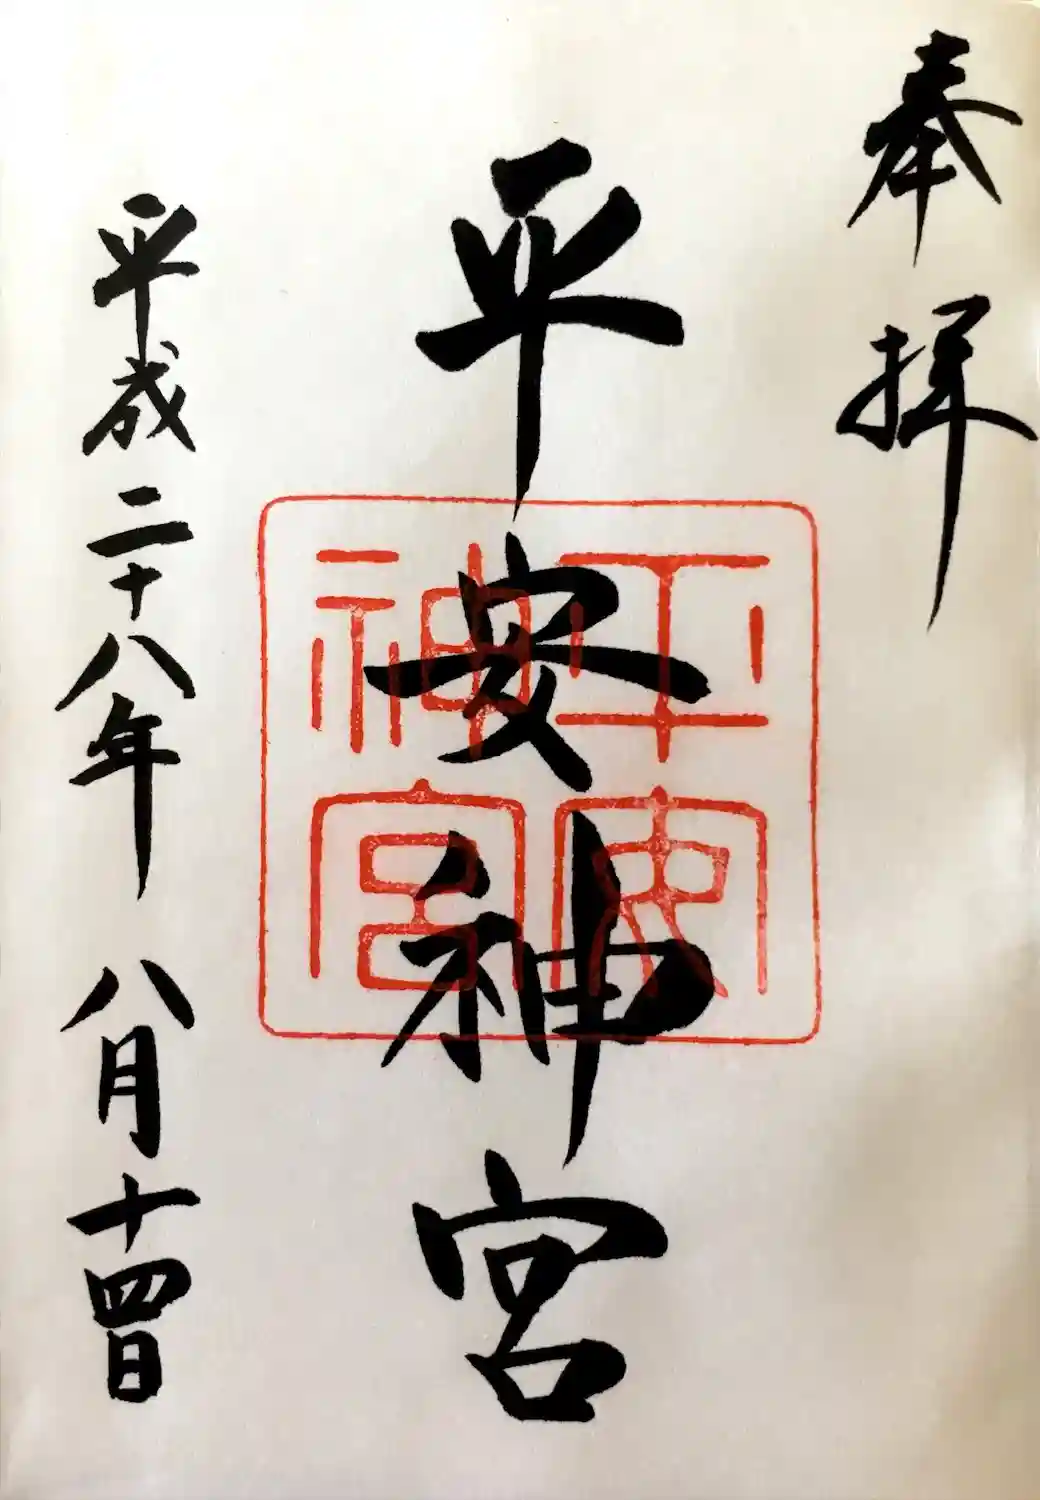 奉拝
平安神宮
平安神宮
平成二十八年八月十四日